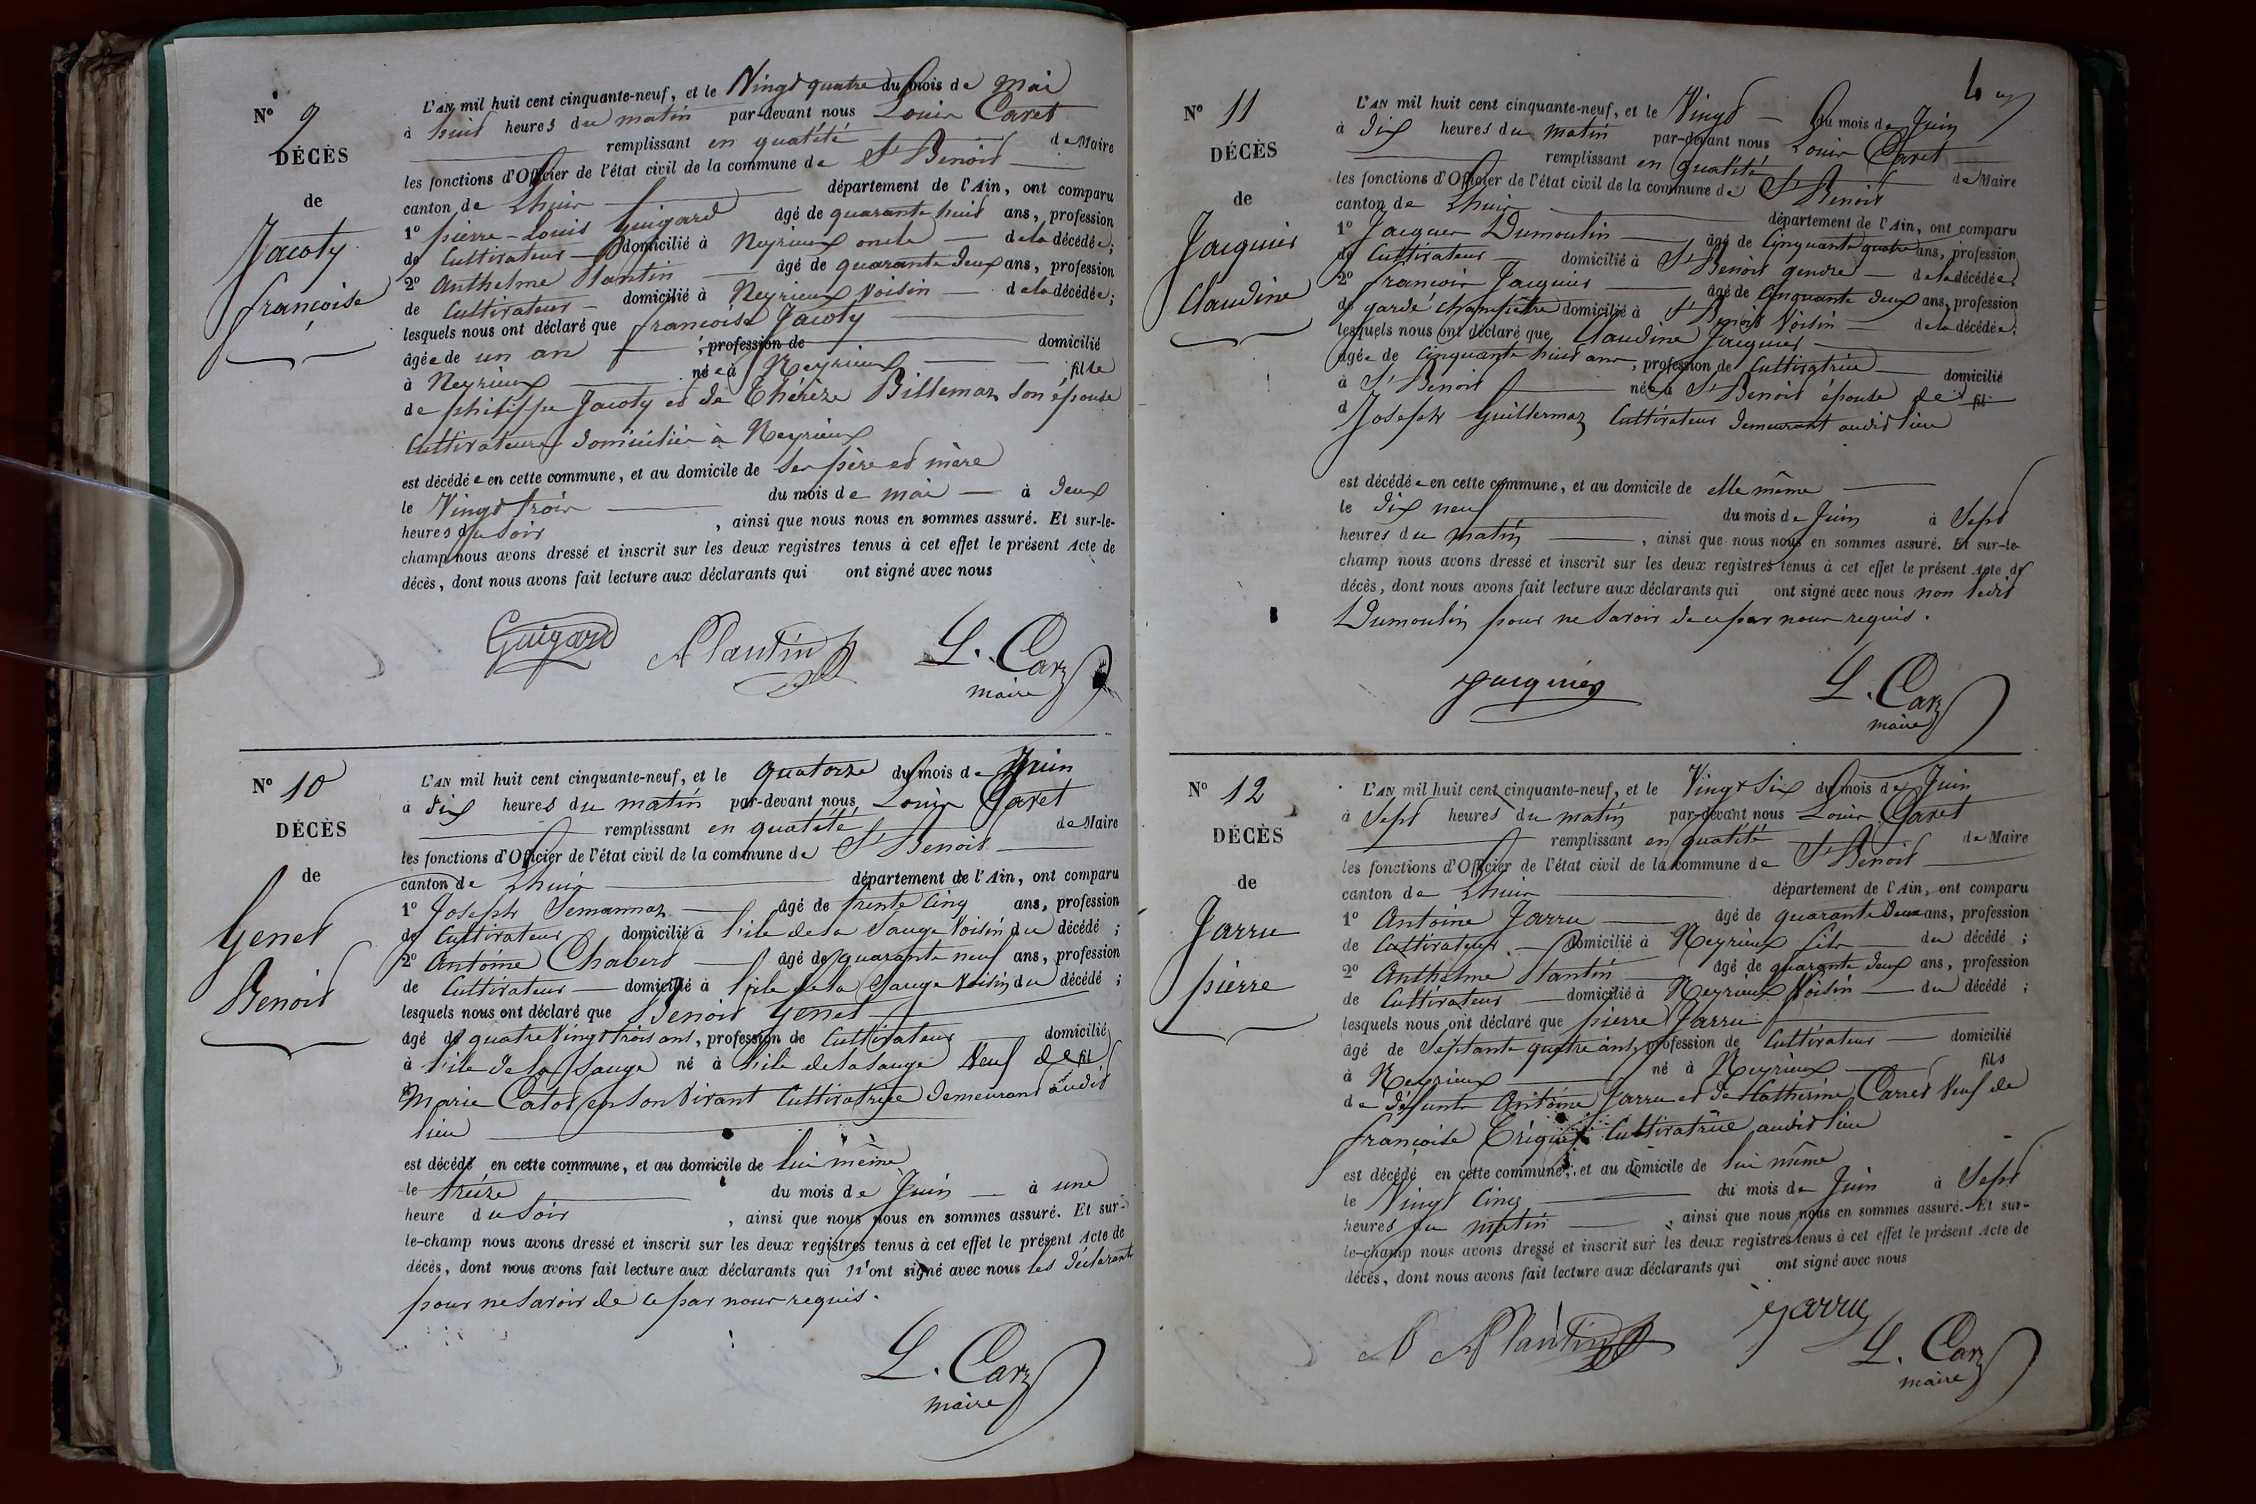 N° 9
DÉCÈS
de
Jacoty
françoise
L'AN mil huit cent cinquante-neuf, et le Vingt quatre du mois de mai
à huit heures du matin par-devant nous Louis Caret
remplissant en qualité de Maire
les fonctions d'Officier de l'état civil de la commune de St Benoit
canton de Lhuis département de l'Ain, ont comparu
1° pierre-Louis Guigard âgé de quarante huit ans, profession
de Cultivateur domicilié à Neyrieux oncle de la décédée;
2° Anthelme Plantin âgé de quarante deux ans, profession
de Cultivateur domicilié à Neyrieux Voisin de la décédée;
lesquels nous ont déclaré que françoise Jacoty
âgée de un an, profession de domicilié
à Neyrieux née à Neyrieux fille
de philippe Jacoty et de Thérèze Billemaz son épouse
Cultivateurs domiciliés à Neyrieux
est décédée en cette commune, et au domicile de ses père et mère
le Vingt trois du mois de mai à deux
heures du soir, ainsi que nous nous en sommes assuré. Et sur-le-
champ nous avons dressé et inscrit sur les deux registres tenus à cet effet le présent Acte de
décès, dont nous avons fait lecture aux déclarants qui ont signé avec nous
Guigard APlantin L. Carz
maire
N° 10
DÉCÈS
de
Genet
Benoit
L'AN mil huit cent cinquante-neuf, et le quatorze du mois de Juin
à dix heures du matin par-devant nous Louis Caret
remplissant en qualité de Maire
les fonctions d'Officier de l'état civil de la commune de St Benoit
canton de Lhuis département de l'Ain, ont comparu
1° Joseph Semannaz âgé de trente cinq ans, profession
de Cultivateur domicilié à l'ile de la Sauge Voisin du décédé;
2° Antoine Chabert âgé de quarante neuf ans, profession
de Cultivateur domicilié à l'ile de la Sauge Voisin du décédé;
lesquels nous ont déclaré que Benoit Genet
âgé de quatre Vingt trois ans, profession de Cultivateur domicilié
à l'ile de la Sauge né à l'ile de la Sauge Veuf de fil
Marie Catot en son Vivant Cultivatrice demeurant audit
lieu
est décédé en cette commune, et au domicile de lui même
le treize du mois de Juin à une
heure du soir, ainsi que nous nous en sommes assuré. Et sur-
le-champ nous avons dressé et inscrit sur les deux registres tenus à cet effet le présent Acte de
décès, dont nous avons fait lecture aux déclarants qui n'ont signé avec nous les déclarants
pour ne savoir de ce par nous requis.
L. Carz
maire
4
N° 11
DÉCÈS
de
Jacquier
Claudine
L'AN mil huit cent cinquante-neuf, et le Vingt du mois de Juin
à dix heures du matin par-devant nous Louis Caret
remplissant en qualité de Maire
les fonctions d'Officier de l'état civil de la commune de St Benoit
canton de Lhuis département de l'Ain, ont comparu
1° Jacques Dumoulin âgé de Cinquante quatre ans, profession
de Cultivateur domicilié à St Benoit gendre de la décédée
2° françois Jacquier âgé de Cinquante deux ans, profession
de garde champêtre domicilié à St Benoit Voisin de la décédée;
lesquels nous ont déclaré que Claudine Jacquier
âgée de Cinquante huit ans, profession de Cultivatrice domicilié
à St Benoit née à St Benoit épouse de fil
d Joseph Guillermaz Cultivateur demeurant audit lieu
est décédée en cette commune, et au domicile de elle même
le dix neuf du mois de Juin à Sept
heures du matin, ainsi que nous nous en sommes assuré. Et sur-le-
champ nous avons dressé et inscrit sur les deux registres tenus à cet effet le présent Acte de
décès, dont nous avons fait lecture aux déclarants qui ont signé avec nous non ledit
Dumoulin pour ne savoir de ce par nous requis.
Jacquier L. Carz
maire
N° 12
DÉCÈS
de
Jarru
pierre
L'AN mil huit cent cinquante-neuf, et le Vingt Six du mois de Juin
à Sept heures du matin par-devant nous Louis Caret
remplissant en qualité de Maire
les fonctions d'Officier de l'état civil de la commune de St Benoit
canton de Lhuis département de l'Ain, ont comparu
1° Antoine Jarru âgé de quarante Deux ans, profession
de Cultivateur domicilié à Neyrieux fils du décédé;
2° Anthelme Plantin âgé de quarante deux ans, profession
de Cultivateur domicilié à Neyrieux Voisin du décédé;
lesquels nous ont déclaré que pierre Jarru
âgé de Septante quatre ans, profession de Cultivateur domicilié
à Neyrieux né à Neyrieux fils
de défunts Antoine Jarru et de Catherine Carret Veuf de
françoise Cultivatrice audit lieu
est décédé en cette commune, et au domicile de lui même
le Vingt Cinq du mois de Juin à Sept
heures du matin, ainsi que nous nous en sommes assuré. Et sur-
le-champ nous avons dressé et inscrit sur les deux registres tenus à cet effet le présent Acte de
décès, dont nous avons fait lecture aux déclarants qui ont signé avec nous
APlantin Jarru L. Carz
maire